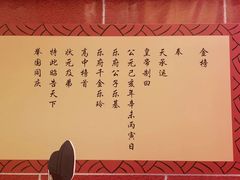 金榜
奉
天承运
皇帝制曰
公元己亥年辛未丙寅日
乐府公子乐基
乐府千金乐玲
高中榜首
状元及第
特此昭告天下
举国同庆